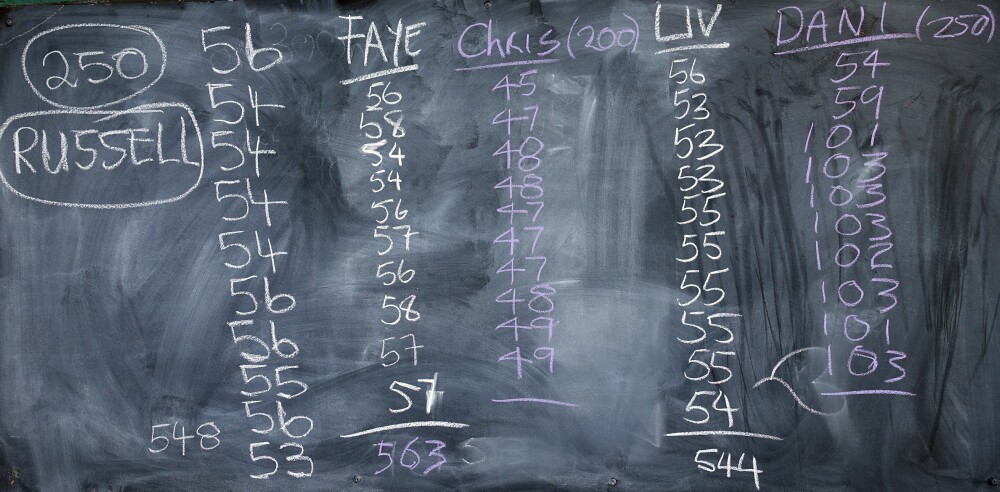 250
RUSSELL
56
54
54
54
54
56
56
55
56
53
548
FAYE
56
58
54
54
56
57
56
58
57
57
563
CHRIS (200)
45
47
48
48
47
47
47
48
49
49
LIV
56
53
53
53
55
55
55
55
55
54
544
DANI (250)
54
59
101
103
103
103
102
103
101
103